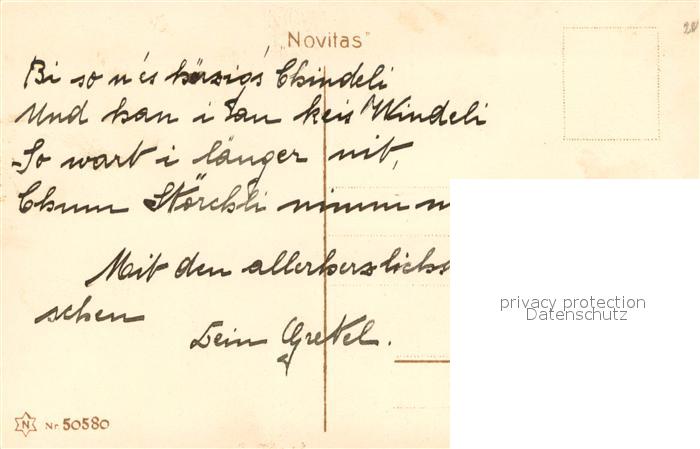 "Novitas"
Bi so n'és härzigs Chindeli
Und han i dan keis Windeli
So wart i länger nit,
Chum Störchli nimm
Mit den allerherzlichs
schen
Dein Gretel.
privacy protection
Datenschutz
N Nr. 50580